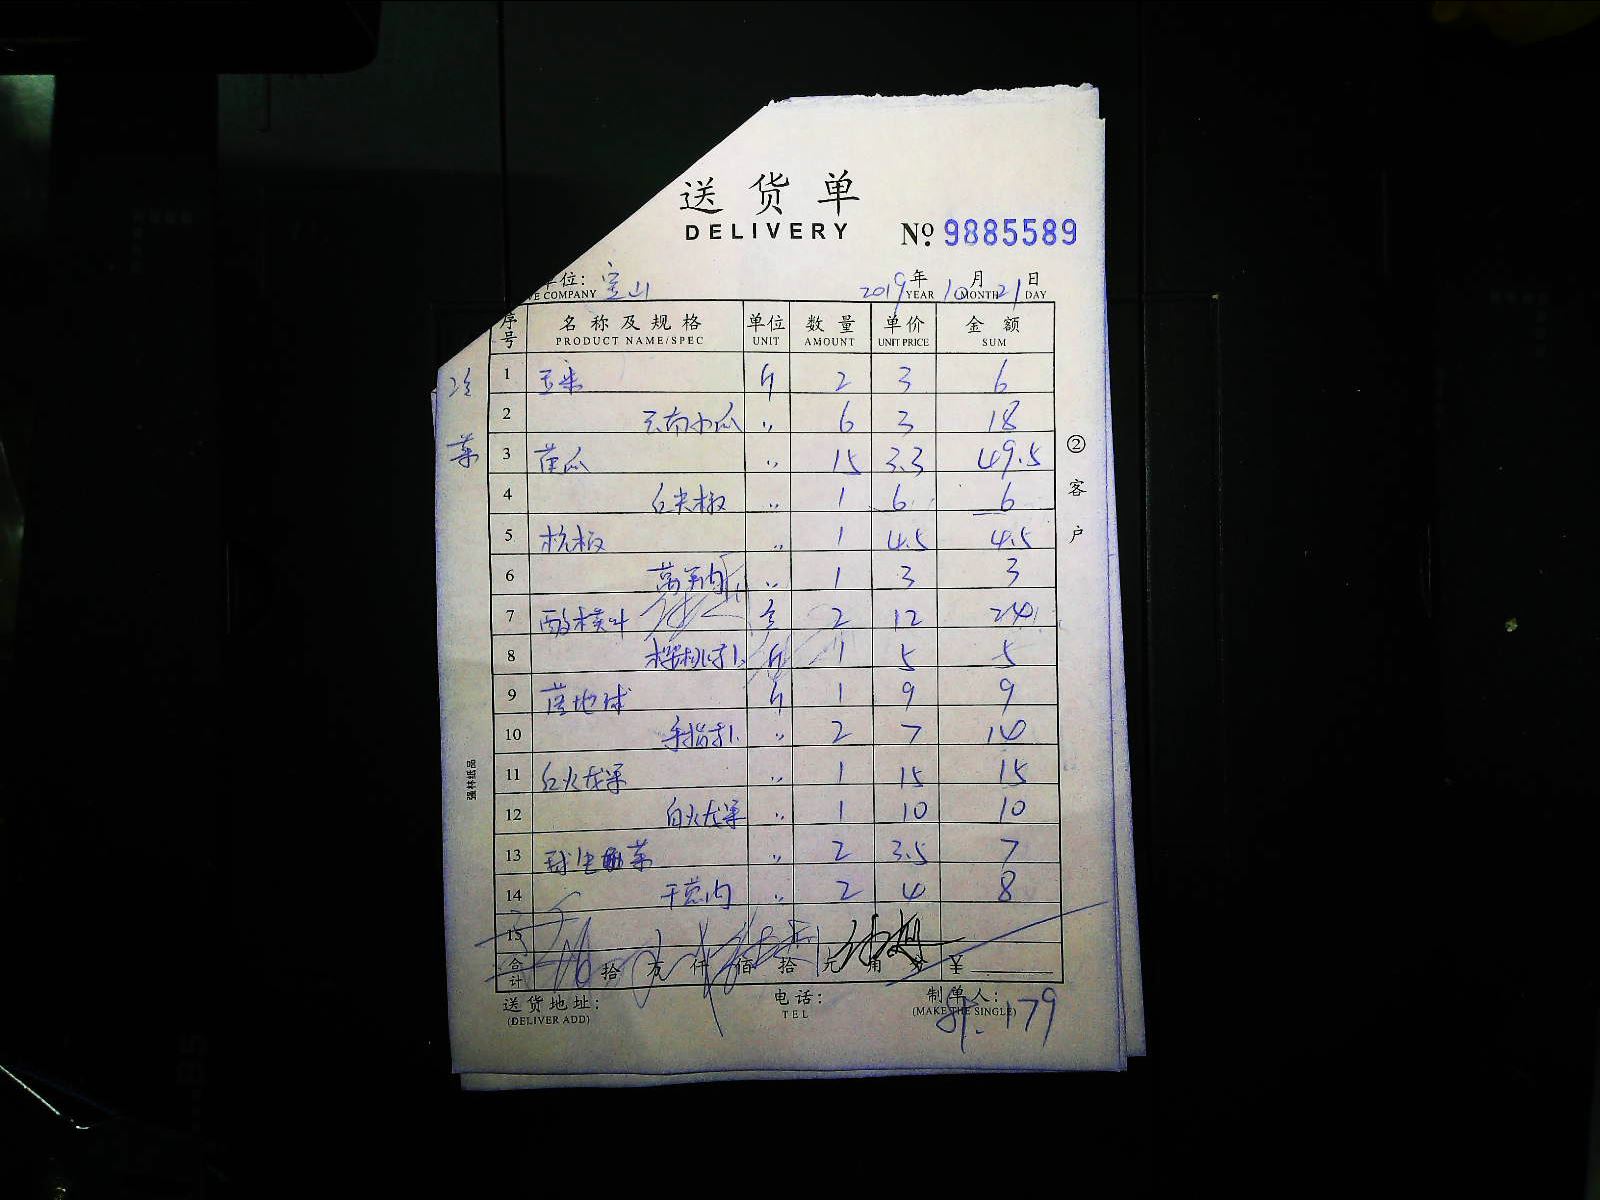 送货单
DELIVERY
No. 9885589
单位: 宝山
VE COMPANY
2019年10月21日
YEAR MONTH DAY
序号 名称及规格 单位 数量 单价 金额
PRODUCT NAME/SPEC UNIT AMOUNT UNIT PRICE SUM
冷菜
1 玉米 斤 2 3 6
2 云南小瓜 〃 6 3 18
3 黄瓜 〃 15 3.3 49.5
4 红尖椒 〃 1 6 6
5 杭椒 〃 1 4.5 4.5
6 1 3 3
7 2 12 24
8 斤 1 5 5
9 斤 1 9 9
10 〃 2 7 14
11 红火龙果 〃 1 15 15
12 白火龙果 〃 1 10 10
13 球生菜 〃 2 3.5 7
14 干葱肉 〃 2 4 8
15
合计 拾 万 仟 佰 拾 元 角 分 ¥
②客户
强林纸品
送货地址: 电话: 制单人:
(DELIVER ADD) TEL (MAKE THE SINGLE)
179